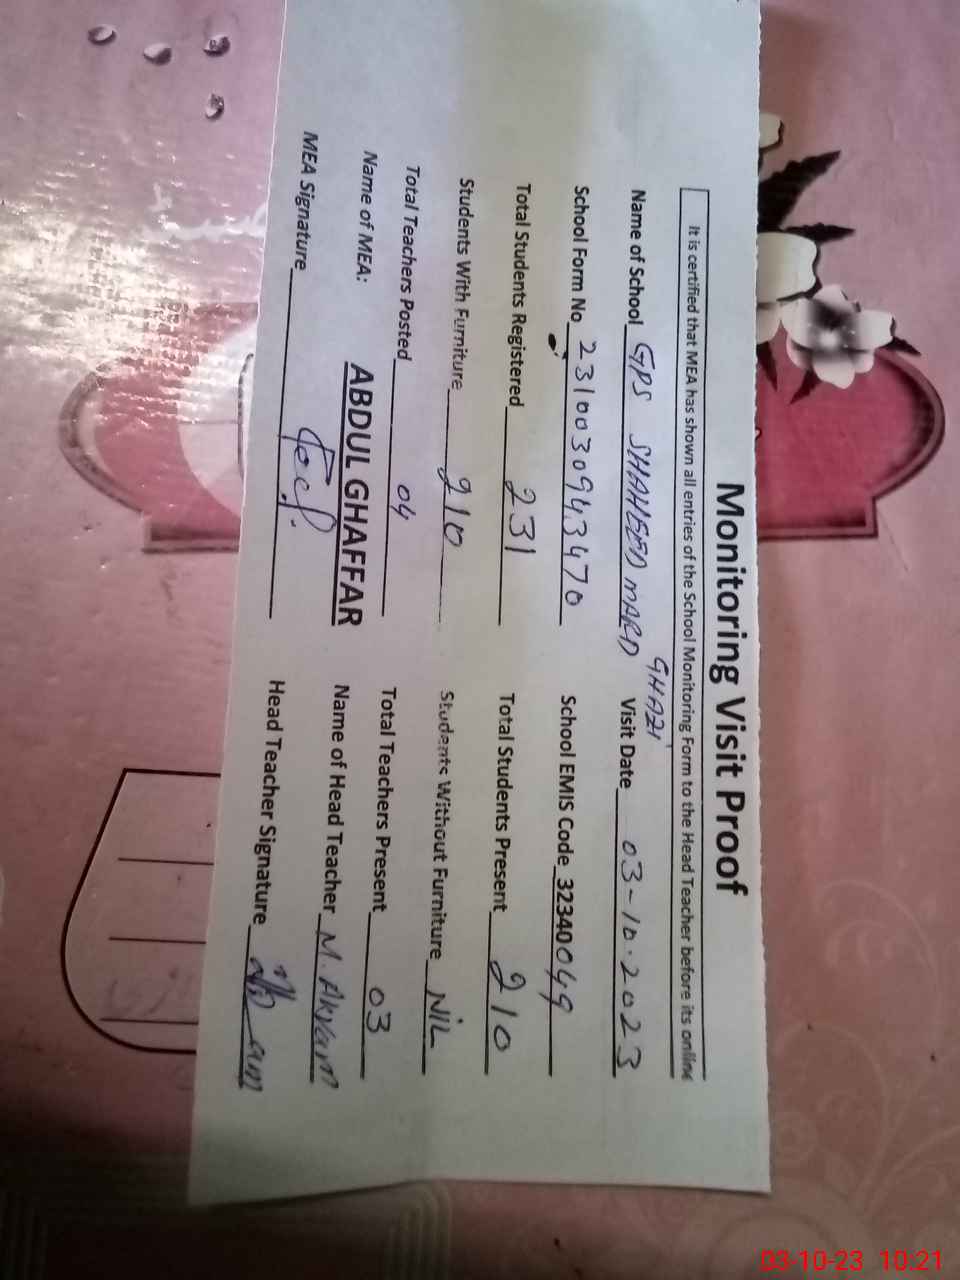 Monitoring Visit Proof
It is certified that MEA has shown all entries of the School Monitoring Form to the Head Teacher before its online
Name of School GPS SHAHEED MARD GHAZI Visit Date 03-10-2023
School Form No 2310030943470 School EMIS Code 32340049
Total Students Registered 231 Total Students Present 210
Students With Furniture 210 Students Without Furniture NIL
Total Teachers Posted 04 Total Teachers Present 03
Name of MEA: ABDUL GHAFFAR Name of Head Teacher M. Akram
MEA Signature Head Teacher Signature
03-10-23 10:21